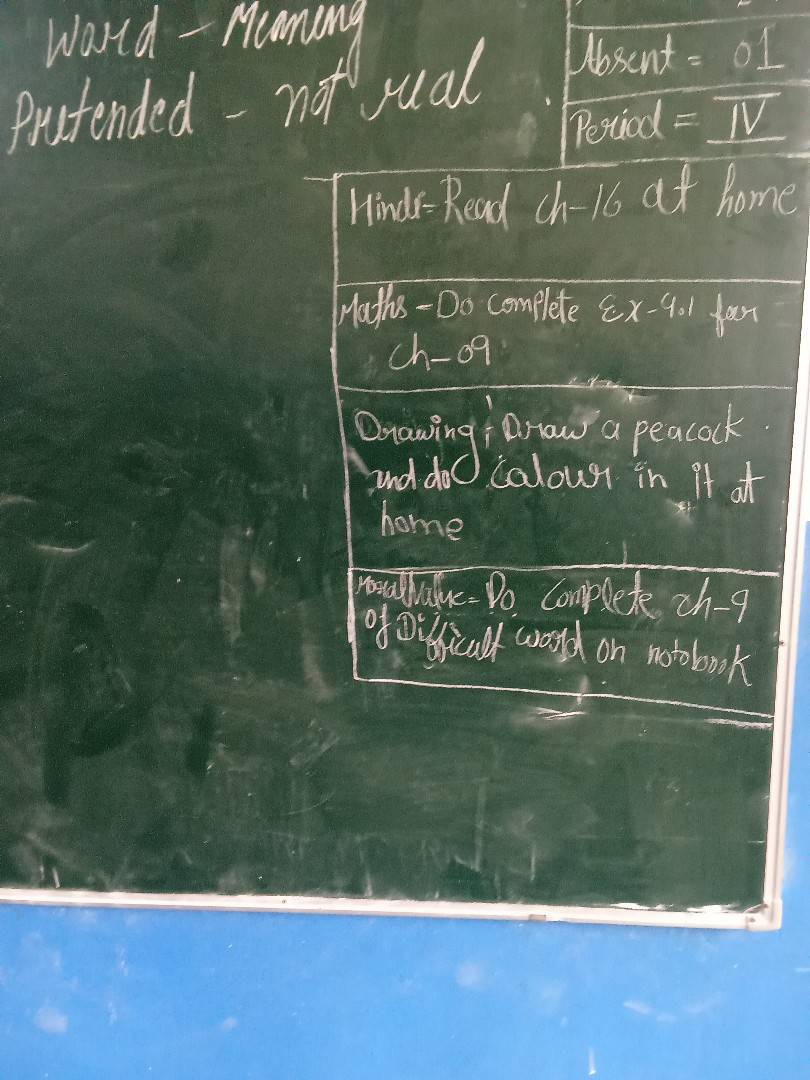 Word - Meaning
Pretended - not real
Absent = 01
Period = IV
Hindi = Read ch-16 at home
Maths - Do complete Ex-9.1 for
ch-09
Drawing : Draw a peacock
and do colour in it at
home
Moral Value = Do complete ch-9
of Difficult word on notobook